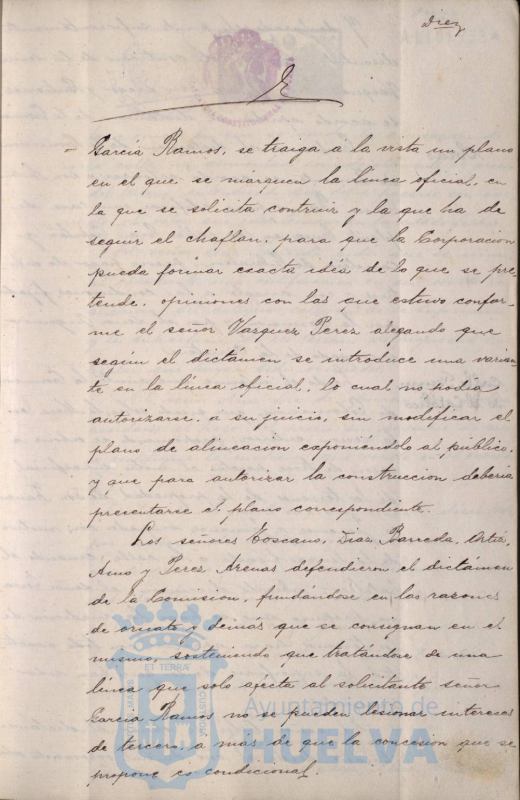 Diez
García Ramos, se traiga à la vista un plano
en el que se marquen la línea oficial, en
la que se solicita contruir y la que ha de
seguir el chaflan, para que la Corporacion
pueda formar exacta idéa de lo que se pre-
tende, opiniones con las que estuvo confor-
me el señor Vazquez Perez alegando que
según el dictámen se introduce una varian-
te en la línea oficial, lo cual no podia
autorizarse, a su juicio, sin modificar el
plano de alineacion exponiéndolo al público,
y que para autorizar la construccion debería
presentarse el plano correspondiente.
Los señores Toscano, Diaz Barreda, Ortiz,
Amo y Perez Arenas defendieron el dictámen
de la Comision, fundándose en las razones
de ornato y demás que se consignan en el
mismo, sosteniendo que tratándose de una
línea que solo afecta al solicitante señor
García Ramos no se pueden lesionar intereses
de tercero, a mas de que la concesion que se
propone es condicional.
ET TERRÆ
Ayuntamiento de
HUELVA